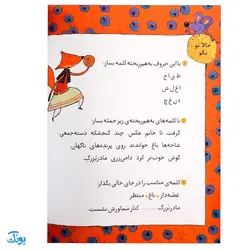 حالا تو
بگو
با این حروف به‌هم‌ریخته کلمه بساز:
ط ی ا ح
ا غ ل ش
و ن غ چ
با کلمه‌های به‌هم‌ریخته‌ی زیر جمله بساز:
گرفت تا خانم عکس چند گنجشکه دسته‌جمعی.
شاخه‌ها باغ خواندند روی پرنده‌های ناگهان.
گوش خوب‌تر کرد دامن‌زری مادربزرگ.
کلمه‌ی مناسب را در جای خالی بگذار:
غصه‌دار - باغ - منتظر
مادربزرگ ......... کنار سماورش نشست.
پونک